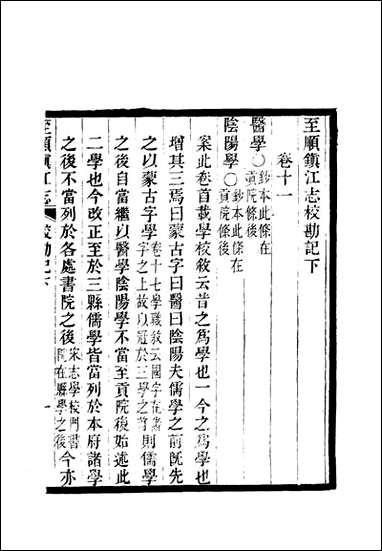 至順鎮江志校勘記下
卷十一
醫學○鈔本此條在貢院條後
陰陽學○鈔本此條在貢院條後
案此卷首載學校敘云昔之爲學也一今之爲學也
增其三焉曰蒙古字曰醫曰陰陽夫儒學之前旣先
之以蒙古字學卷十七學職敘云國字在諸字之上故以冠於三學之首則儒學
之後自當繼以醫學陰陽學不當至貢院後始述此
二學也今改正至於三縣儒學皆當列於本府諸學
之後不當列於各處書院之後宋志學校門書院在縣學之後今亦
至順鎮江志
校勘記下
一